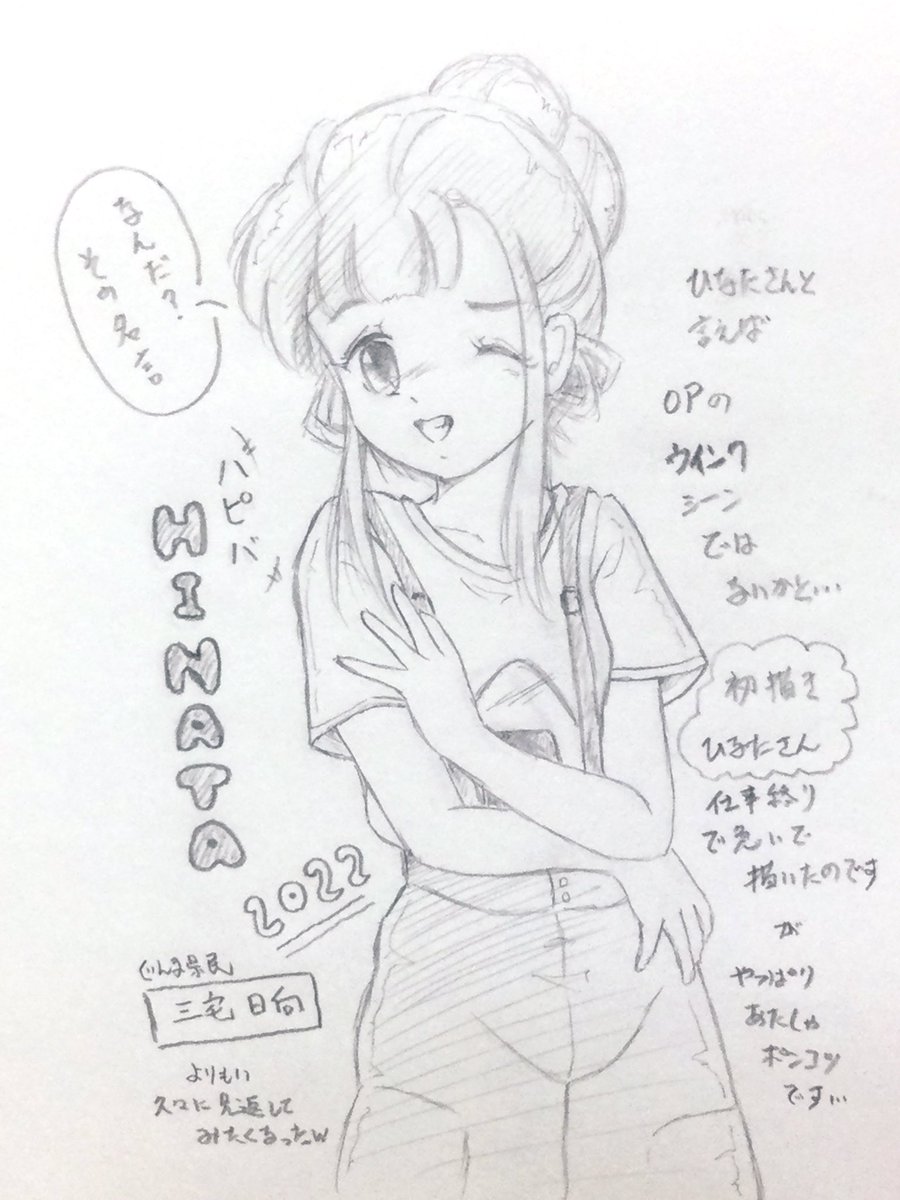 なんだ?
その名言。
ハピバ
HINATA
2022
ぐんま県民
三宅日向
よりもい
久々に見返して
みたくなったw
ひなたさんと
言えば
OPの
ウインク
シーン
では
ないかと…
初描き
ひなたさん
仕事終り
で急いで
描いたのです
が
やっぱり
あたしゃ
ポンコツ
です…